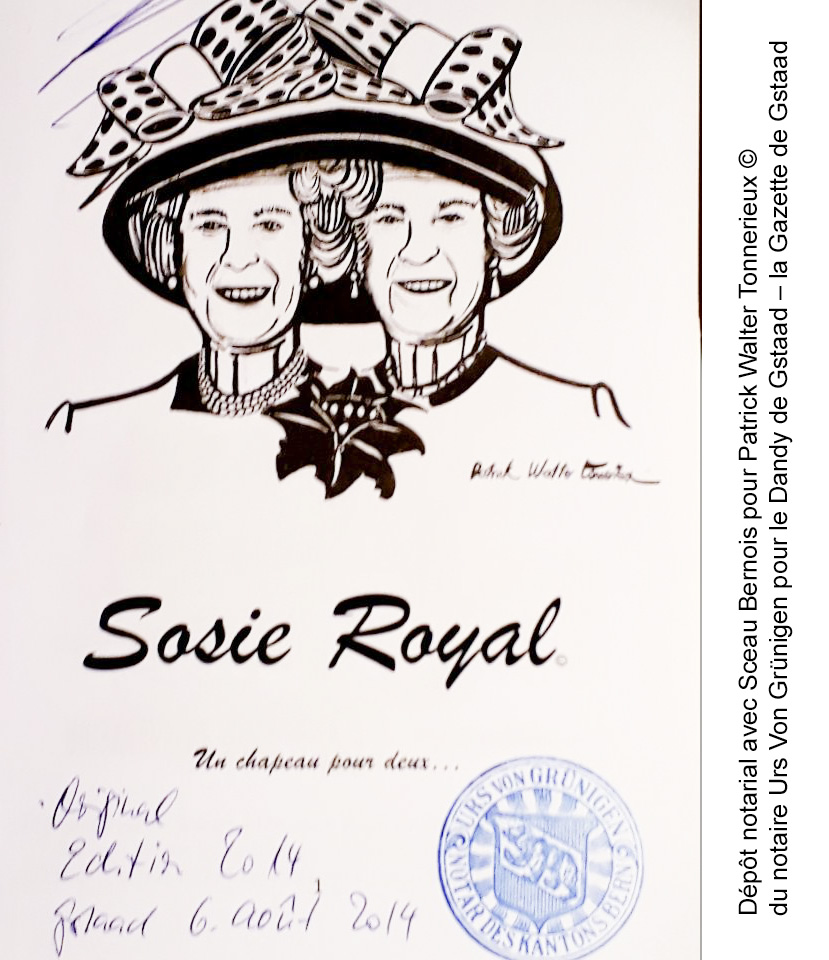 Patrick Walter Tonnerieux
Sosie Royal ©
Un chapeau pour deux...
Original
Edition 2014,
Gstaad 6. août 2014
URS VON GRÜNIGEN
NOTAR DES KANTONS BERN
Dépôt notarial avec Sceau Bernois pour Patrick Walter Tonnerieux ©
du notaire Urs Von Grünigen pour le Dandy de Gstaad – la Gazette de Gstaad